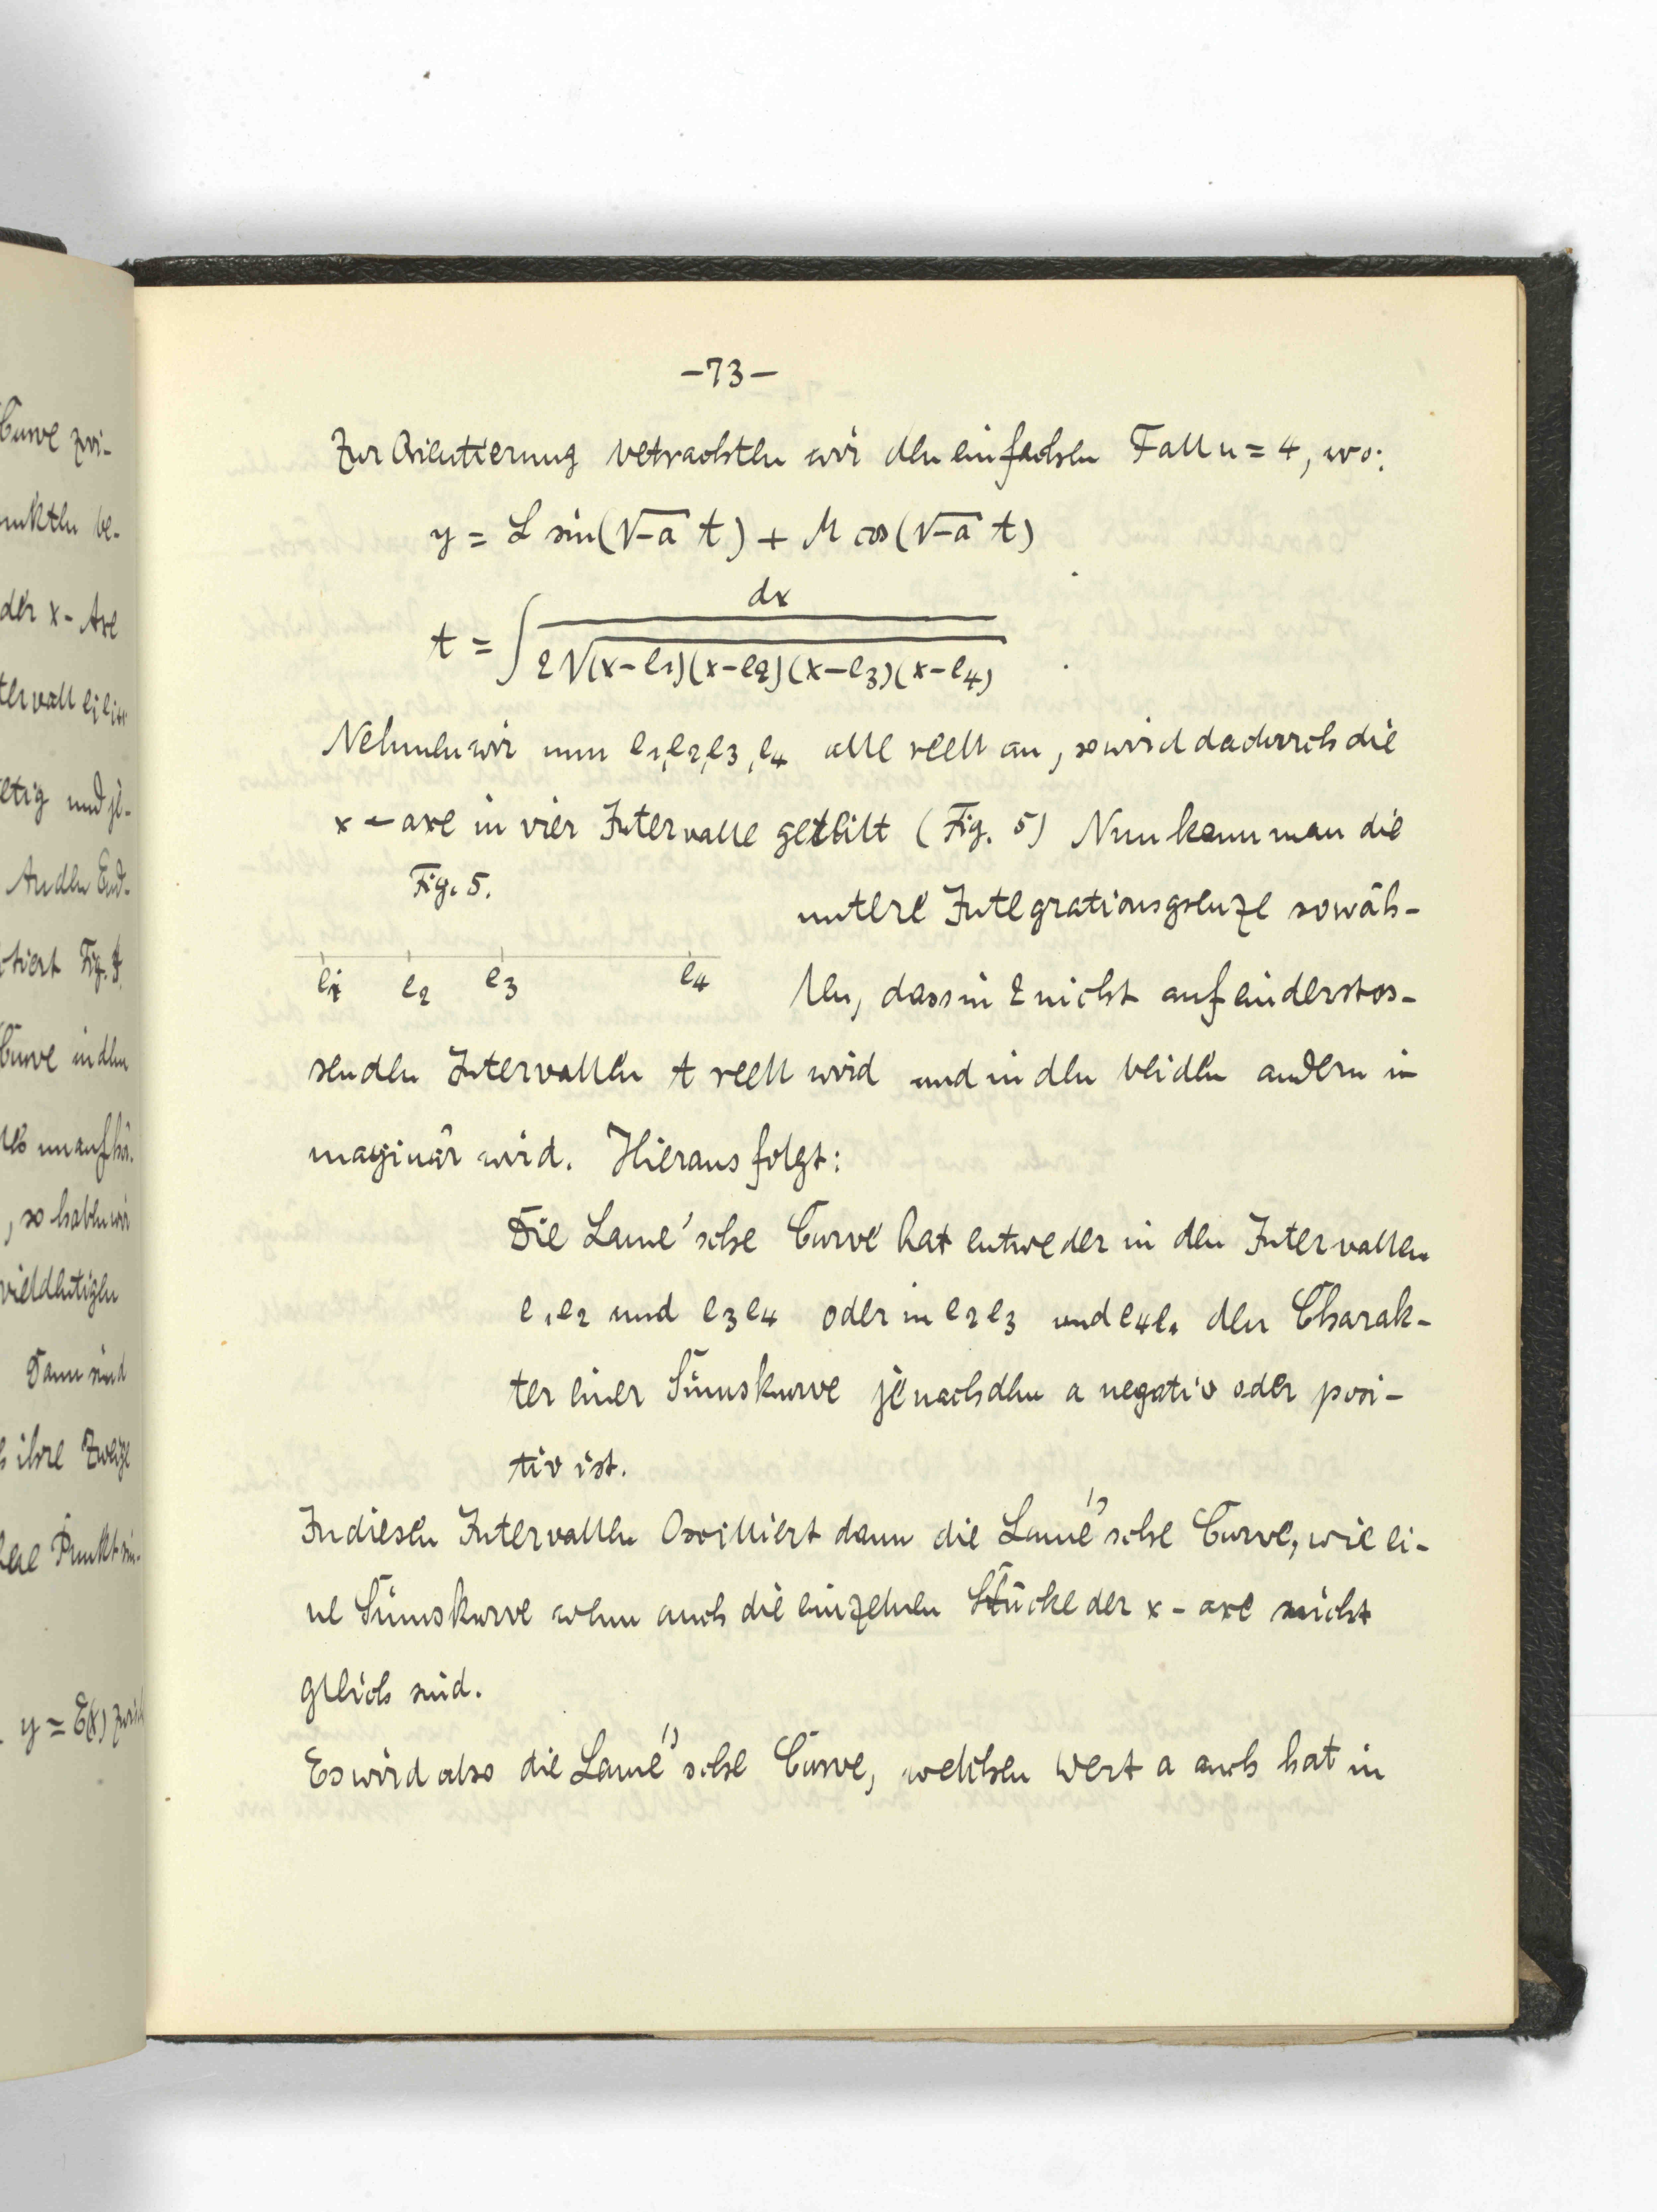 Curve zwi-
unkten be-
der x-Axe
tervall eiei+1
etig und je-
An den End-
otiert Fig. 4.
Curve in den
, so haben wir
vieldeutigen
Dann sind
ihre Zweige
y = E(x)
-73-
Zur Orientierung betrachten wir den einfachsten Fall n = 4, wo:
y = L sin(√-a t) + M cos(√-a t)
t = ∫ dx / 2√(x-e1)(x-e2)(x-e3)(x-e4)
Nehmen wir nun e1, e2, e3, e4 alle reell an, so wird dadurch die
x-axe in vier Intervalle geteilt (Fig. 5) Nun kann man die
Fig. 5.
untere Integrationsgrenze so wäh-
e1 e2 e3 e4
len, dass in 2 nicht aufeinderstos-
senden Intervallen t reell wird und in den beiden andern i-
maginär wird. Hieraus folgt:
Die Lamé'sche Curve hat entweder in den Intervallen
e1e2 und e3e4 oder in e2e3 und e4e1 den Charak-
ter einer Sinuskurve je nachdem a negativ oder posi-
tiv ist.
In diesen Intervallen Oscilliert dann die Lamé'sche Curve, wie ei-
ne Sinuskurve wenn auch die einzelnen Stücke der x-axe nicht
gleich sind.
Es wird also die Lamé'sche Curve, welchen Wert a auch hat in